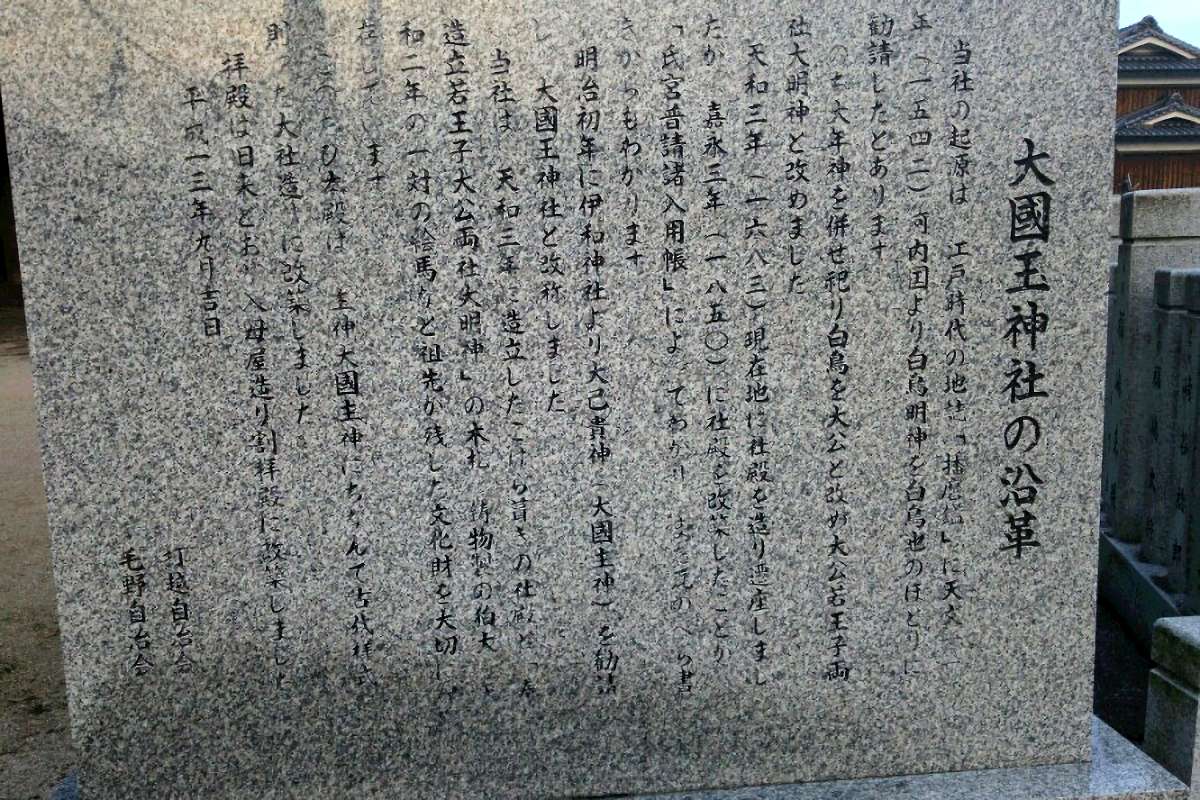 大國玉神社の沿革
当社の起源は 江戸時代の地誌「播磨鑑」に天文
年(一五四二)河内国より白鳥明神を白鳥池のほとりに
勧請したとあります
のち大年神を併せ祀り白鳥を大公と改め大公若王子両
社大明神と改めました
天和三年(一六八三)現在地に社殿を造り遷座しまし
たが 嘉永三年(一八五〇)に社殿を改築したことが
「氏宮普請諸入用帳」によってわかり
書きからもわかります
明治初年に伊和神社より大己貴神(大國主神)を勧請
し 大國玉神社と改称しました
当社は 天和三年に造立したこけら葺きの社殿と「奉
造立若王子大公両社大明神」の木札 鋳物製の狛犬
和二年の一対の絵馬など祖先が残した文化財を大切に
存しています
このたび本殿は 主神大國主神にちなんで古代様式に
則った大社造りに改築しました
拝殿は旧来どおり入母屋造り割拝殿に改築しました
平成一三年九月吉日
打越自治会
毛野自治会